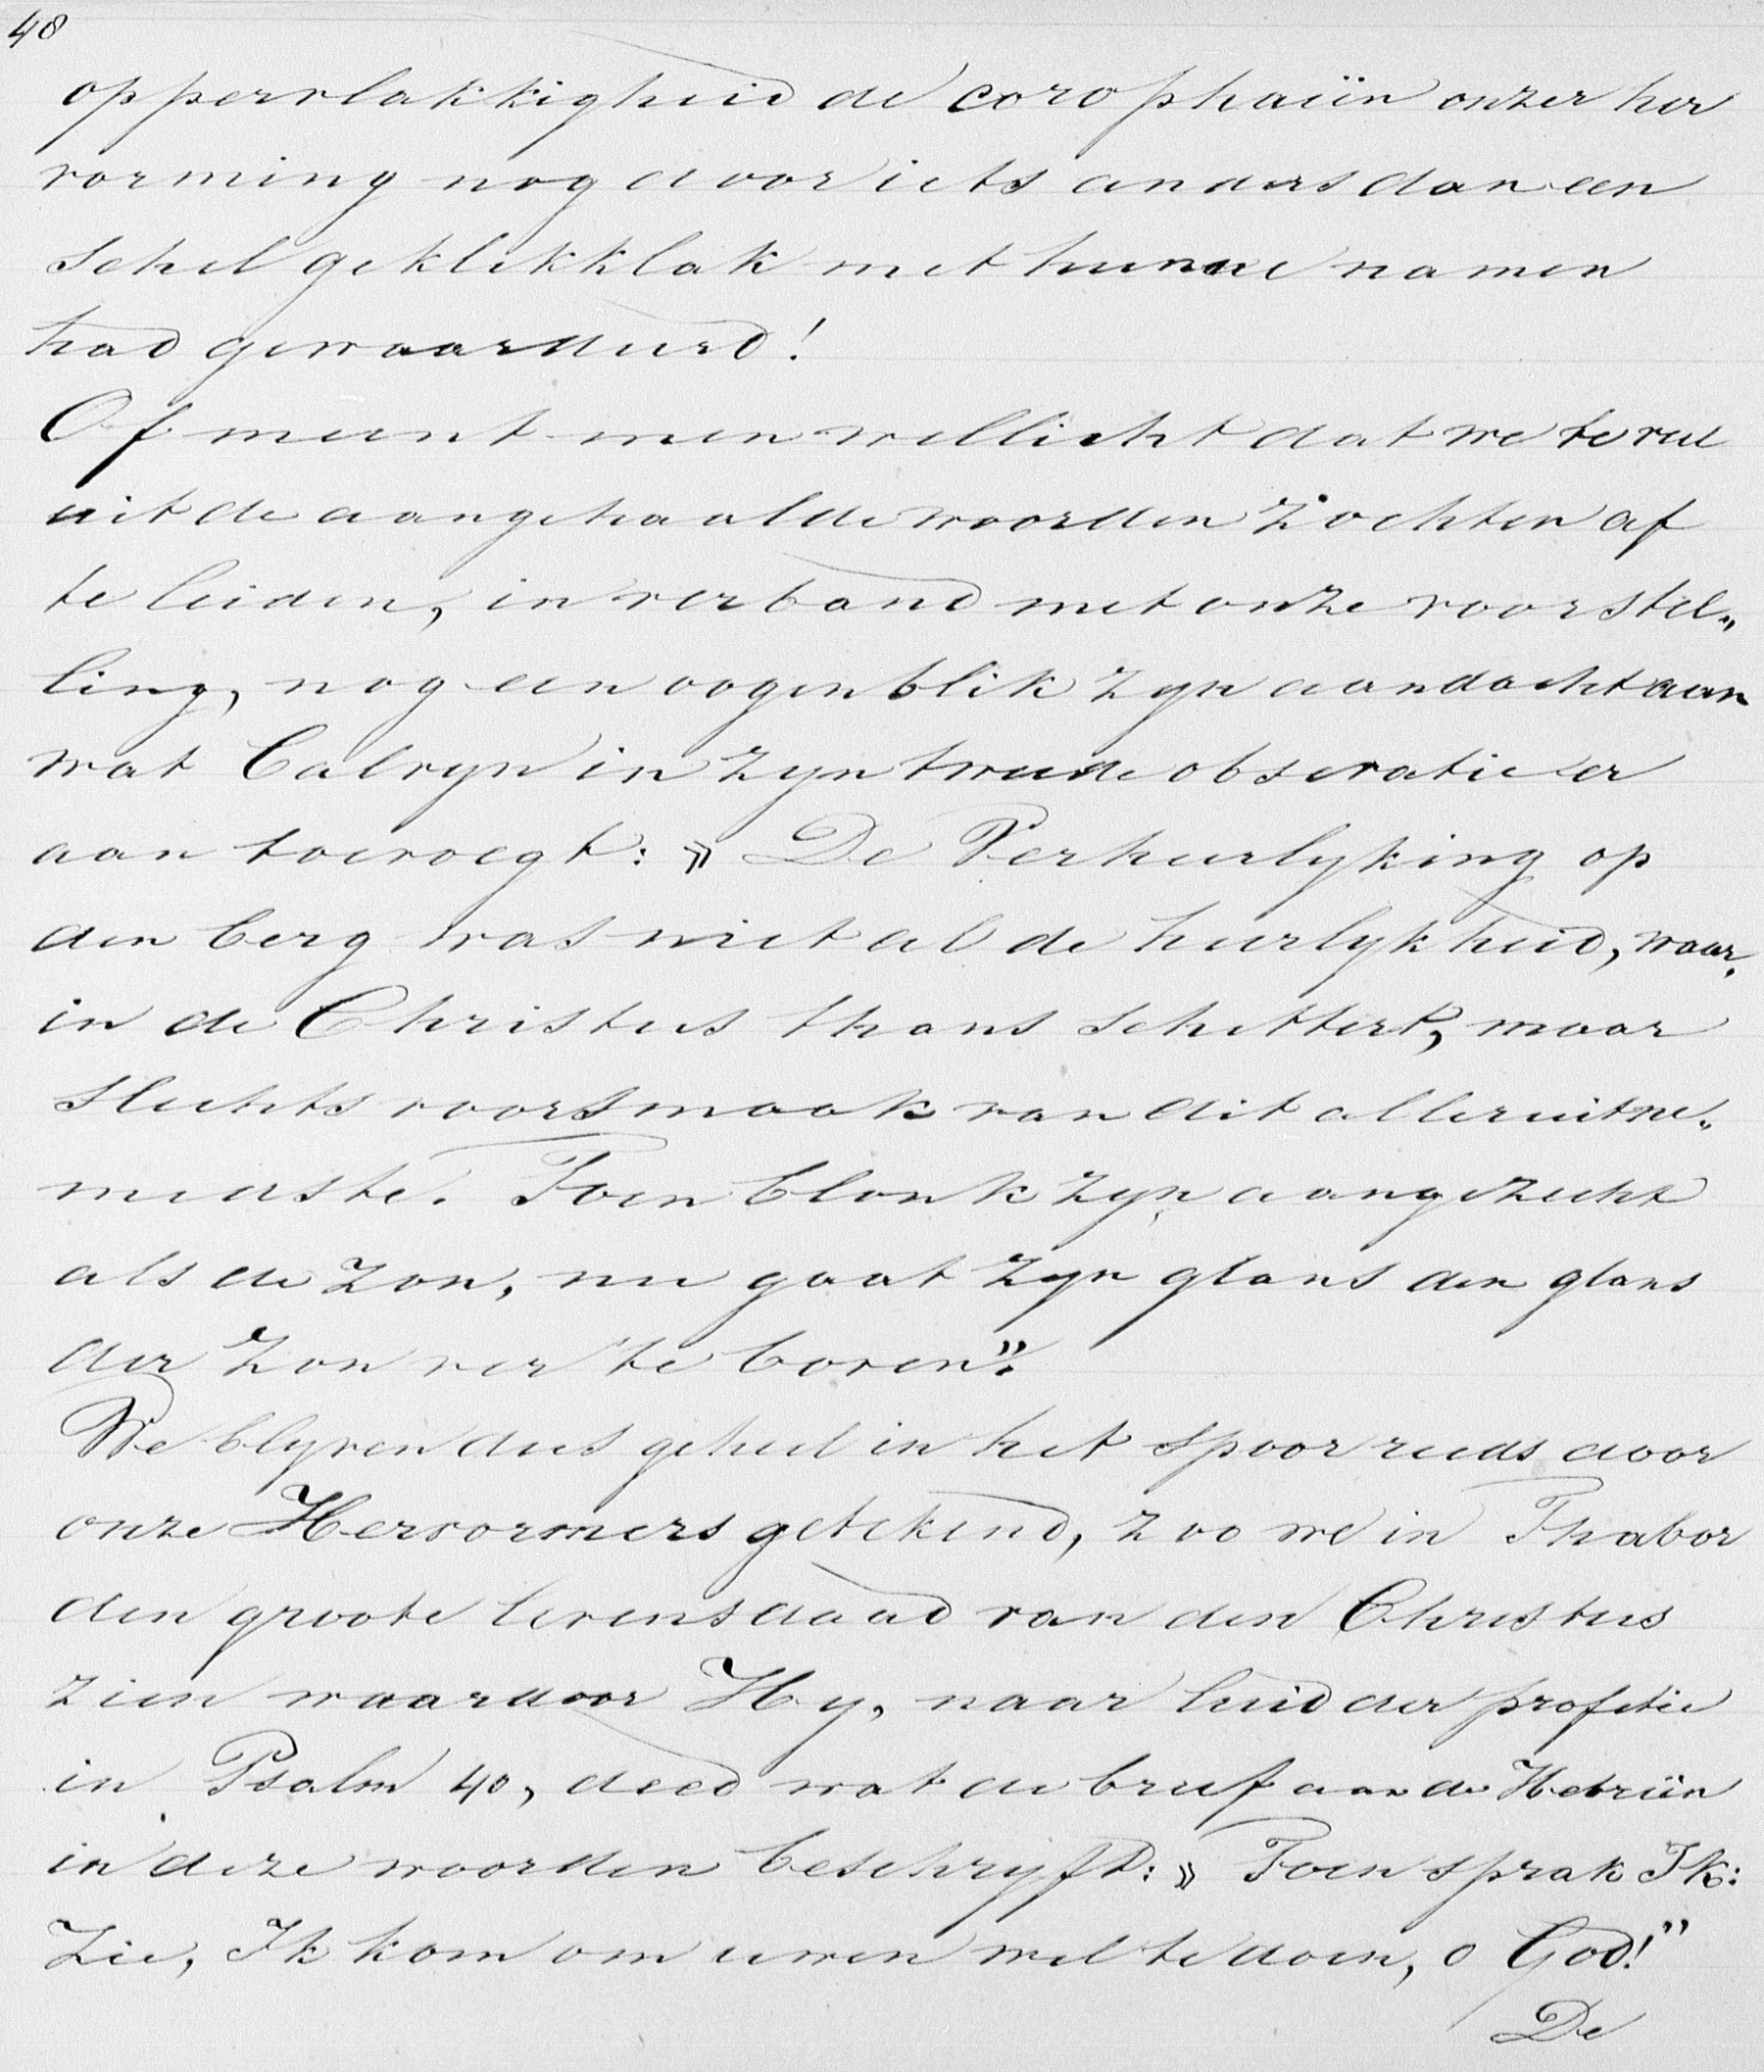 48
oppervlakkigheid de corophaiën onzer her
vorming nog door iets anders dan een
schel geklikklak met hunne namen
had gewaardeerd!
Of meent men wellicht dat we te veel
uit de aangehaalde woorden zochten af
te leiden, in verband met onze voorstel„
ling, nog een oogenblik zyn aandacht aan
wat Calvyn in zyn tweede observatie er
aan toevoegt: » De Verheerlyking op
den berg was niet al de heerlykheid, waar„
in de Christus thans schittert, maar
slechts voorsmaak van dit alleruitne„
mendste. Toen blonk zyn aangezicht
als de zon, nu gaat zyn glans den glans
der zon ver te boven".
We blyven dus geheel in het spoor reeds door
onze Hervormers getekend, zoo we in Thabor
den groote levensdaad van den Christus
zien waardoor Hy, naar luid der profetie
in Psalm 40, deed wat de brief aan de Hebriën
in deze woorden beschryft: » Toen sprak Ik:
Zie, Ik kom om uwen wil te doen, o God!"
De